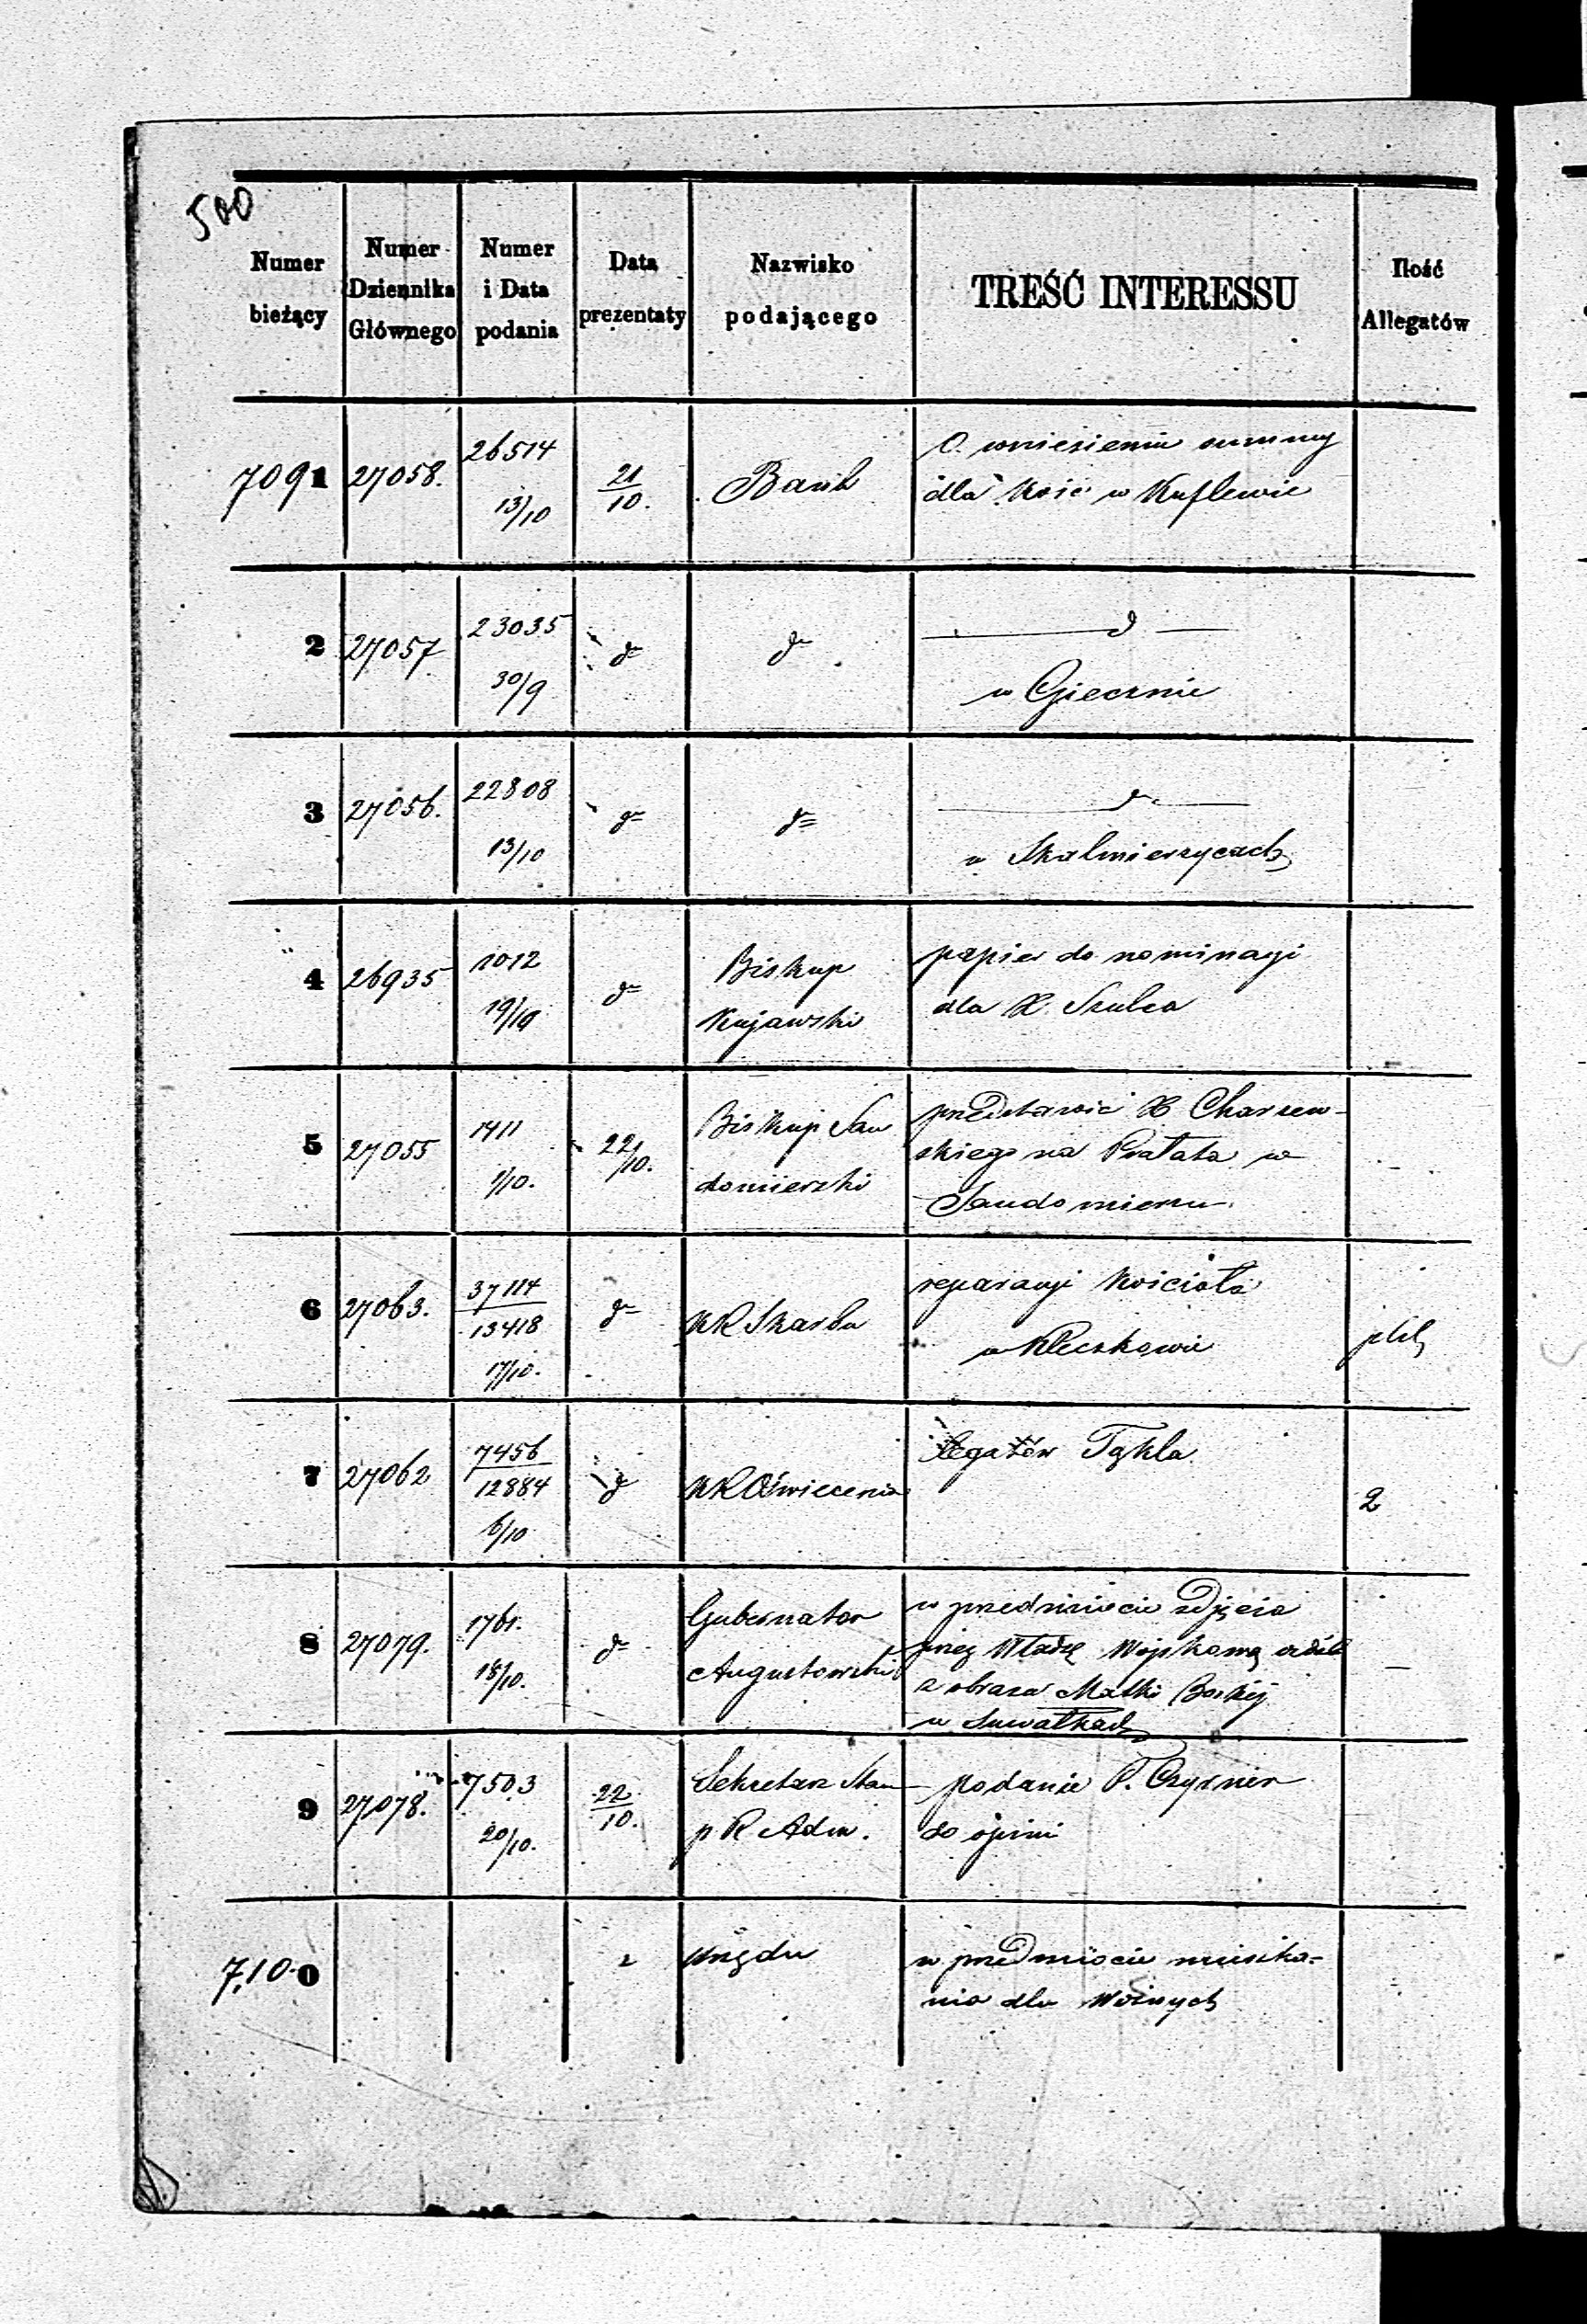 500
Numer bieżący
Numer Dziennika Głównego
Numer i Data podania
Data prezentaty
Nazwisko podającego
TREŚĆ INTERESSU
Ilość Allegatów
7091 27058. 26514 13/10 21/10. Bank
O. wniesieniu summy
dla Kośc w Kuflewie
2 27057 23035 30/9 d° d° d
w Giecznie
3 27056. 22808 13/10 d° d° d°
w Skalmierzycach
4 26935 1012 19/10 d° Biskup
Kujawski
papier do nominacyi
dla X. Szulca
5 27055 1411 1/10. 22/10. Biskup San
domierski
przedstawić X Charzew-
skiego na Prałata w
Sandomierzu.
6 27063. 37114 13418 17/10. d° KR Skarbu
reparacyi Kościoła
w Kleczkowie
plik
7 27062 7456 12884 6/10 d KR Oświecenia
legatów Tękla
2
8 27079. 1761. 18/10. d° Gubernator
Augustowski
w przedmiocie zdjęcia
przez Władzę Wojskową
z obraza Matki Boskiej
w Suwałkach
—
9 27078. 7503 20/10. 22/10. Sekretarz Stan
p R Adm.
podanie P.
do opinii
7100 Urzędu
w przedmiocie mieszka-
nia dla Woźnych